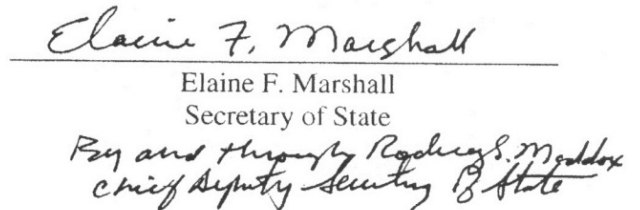 Elaine F. Marshall
Elaine F. Marshall
Secretary of State
By and through Rodney S. Maddox
Chief Deputy Secretary of State